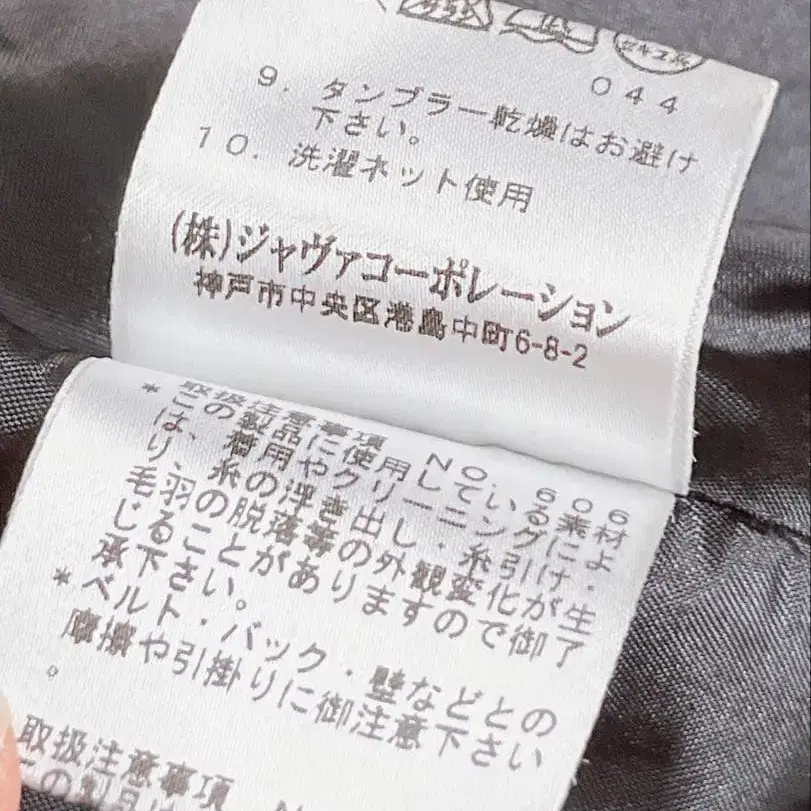 セキユ系
044
9. タンブラー乾燥はお避け
下さい。
10. 洗濯ネット使用
(株)ジャヴァコーポレーション
神戸市中央区港島中町6-8-2
取扱注意事項 NO. 606
*この製品に使用している素材
は、着用やクリーニングによ
り、糸の浮き出し・糸引け・
毛羽の脱落等の外観変化が生
じることがありますので御了
承下さい。
*ベルト・バック・壁などとの
摩擦や引掛りに御注意下さい
。
取扱注意事項 N
この製品は